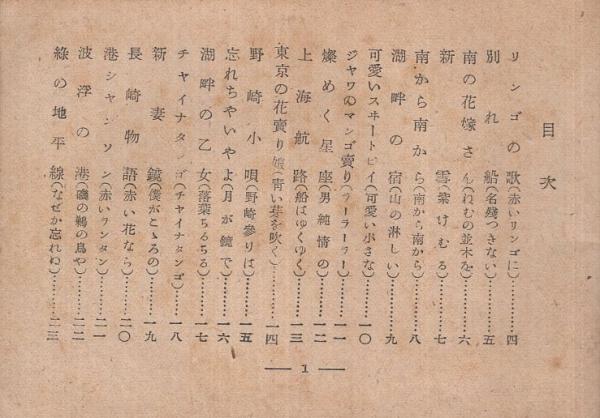 目次
リンゴの歌(赤いリンゴに)………四
別れ船(名殘つきない)………五
南の花嫁さん(ねむの並木を)………六
新雪(紫けむる)………七
南から南から(南から南から)………八
湖畔の宿(山の淋しい)………九
可愛いスヰートピイ(可愛い小さな)………一〇
ジャワのマンゴ賣り(ラーラーラー)………一一
燦めく星座(男純情の)………一二
上海航路(船はゆくゆく)………一三
東京の花賣り娘(靑い芽を吹く)………一四
野崎小唄(野崎參りは)………一五
忘れちやいやよ(月が鏡で)………一六
湖畔の乙女(落葉ちるちる)………一七
チャイナタンゴ(チャイナタンゴ)………一八
新妻鏡(僕がこゝろの)………一九
長崎物語(赤い花なら)………二〇
港シャンソン(赤いランタン)………二一
波浮の港(磯の鵜の鳥や)………二二
綠の地平線(なぜか忘れぬ)………二三
— 1 —